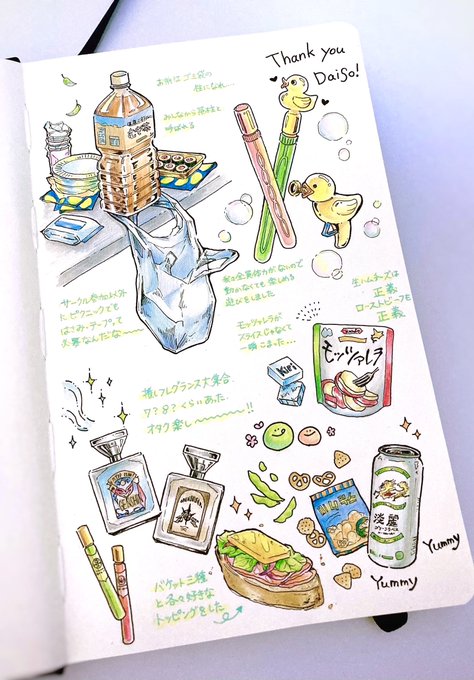 Thank you
Daiso!
お前はゴミ袋の
柱になれ…
みんなから茶柱と
呼ばれる
サークル参加以外
に ピクニックでも
はさみ・テープって
大事なんだな〜〜
動かなくても楽しめる
遊びをしました
生ハムチーズは
正義
ローストビーフも
正義
モッツァレラが
スライスじゃなくて
一瞬こまった…
モッツァレラ
Kiri
推しフレグランス大集合
7?8?くらいあった
オタク楽し〜〜〜!!
淡麗
Yummy
Yummy
バケット三種
と各々好きな
トッピングをした